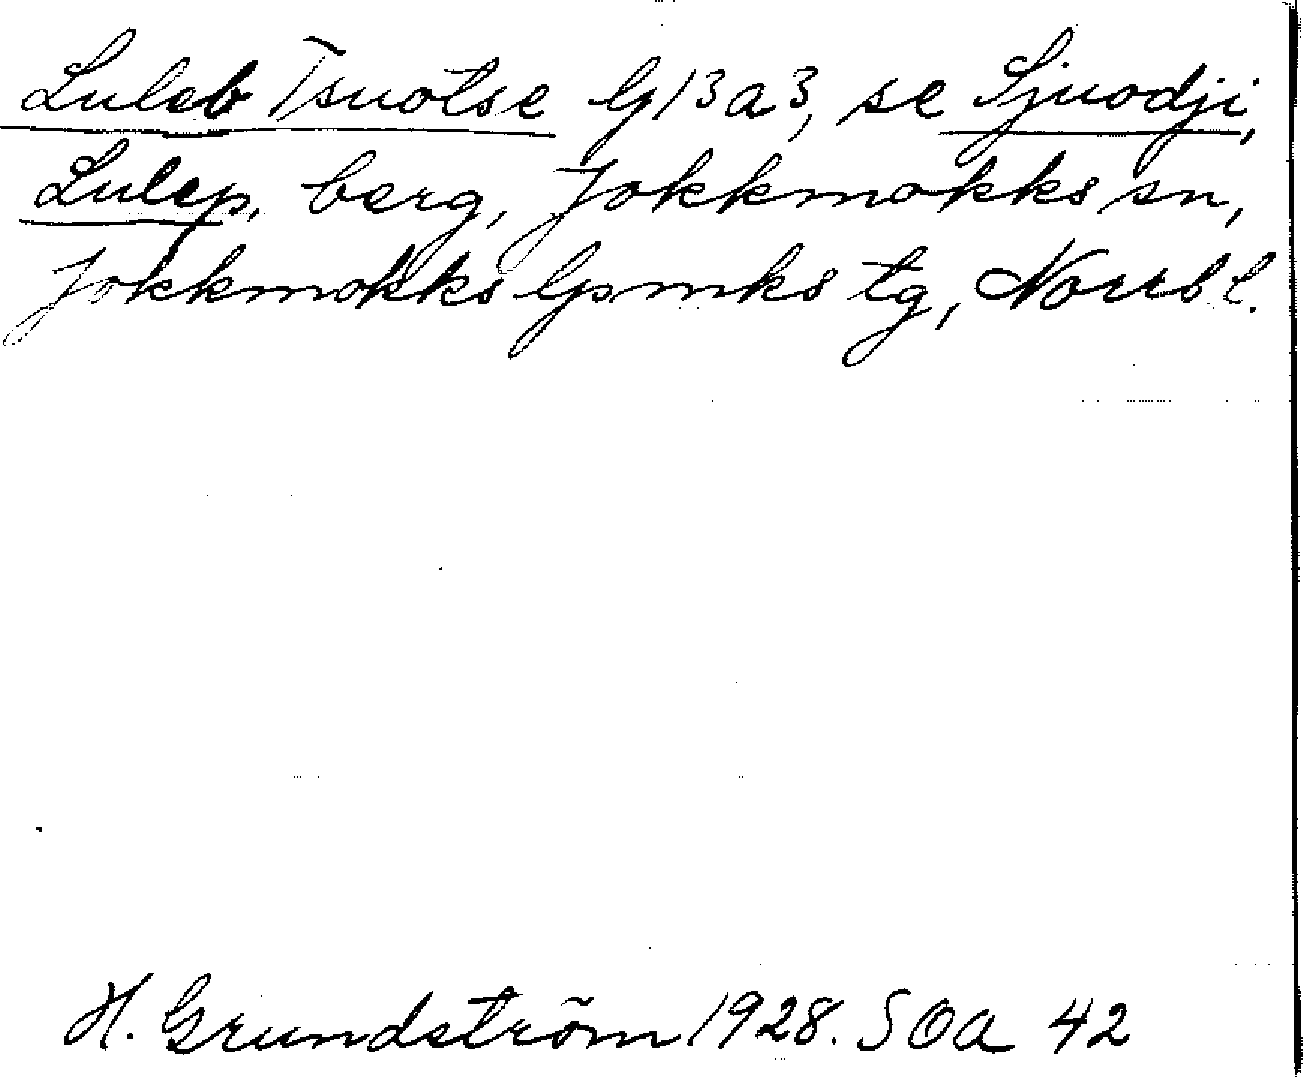 Luleb Tsuotse lp 13a3, se Sjuodji,
Lulep, berg, Jokkmokks sn,
Jokkmokks lpmks tg, Norrb l.
H. Grundström 1928. SOA 42